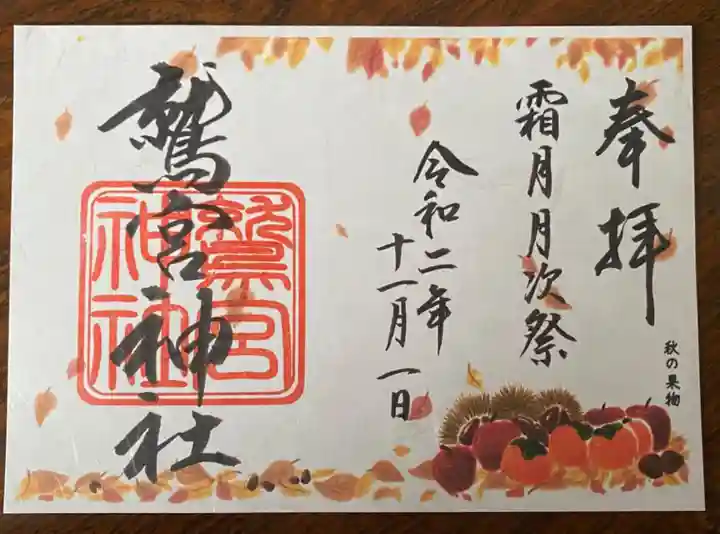 奉拝
霜月月次祭
令和二年
十一月一日
秋の果物
鷲宮神社
鷲宮
神社